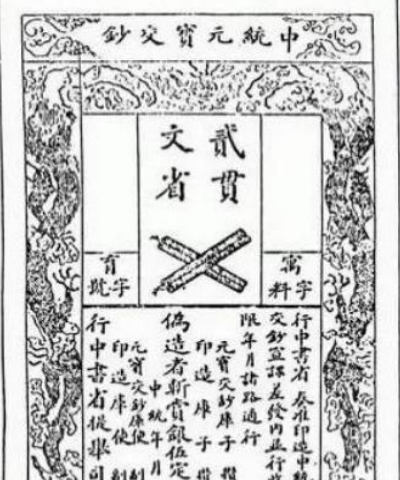 中統元寶交鈔
貳貫
文省
字料
字號
行中書省 奏准印造中統
交鈔宣課差發內並行收
限年月諸路通行
元寶交鈔庫子 攢
印造庫子 攢
偽造者斬賞銀伍定
中統 年 月
元寶交鈔庫使 副
印造庫使 副
行中書省提舉司